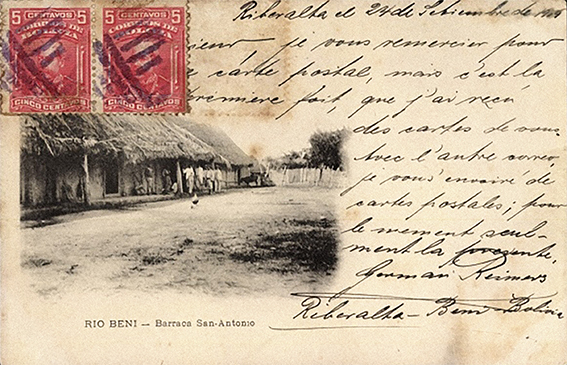 5 CENTAVOS 5
CORREOS DE
BOLIVIA
CINCO CENTAVOS
5 CENTAVOS 5
CORREOS DE
BOLIVIA
CINCO CENTAVOS
Riberalta el 24 de Setiembre de
je vous remercier pour
carte postal, mais c'est la
premiere foit que j'ai reçu
des cartes de vous
Avec l'autre correo
je vous envoiré de
cartes postales; pour
le mement seul-
ment la presente,
German Reimers
Riberalta - Beni Bolivia
RIO BENI — Barraca San-Antonio